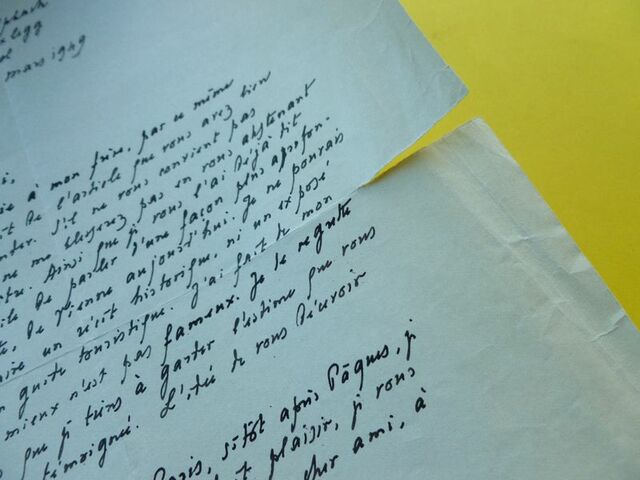 mars 1949
à mon frère, par ce même
de l'article que vous avez bien
S'il ne vous convient pas
ne me choquez pas en vous abstenant
Ainsi que je vous l'ai déjà dit
de parler d'une façon plus approfon-
de Vienne aujourd'hui. Je ne pouvais
un récit historique, ni un exposé
guide touristique. J'ai fait de mon
mieux n'est pas fameux. Je le regrette
que je tiens à garder l'estime que vous
témoigné. L'idée de vous décevoir
Paris, sitôt après Pâques, je
plaisir, je vous
cher ami, à